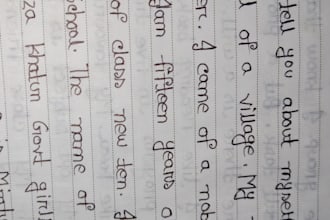 tell you about myself
of a village. My
er. I came of a nob
am fifteen years o
of class new ten. I
School. The name of
za khatun Govt girls